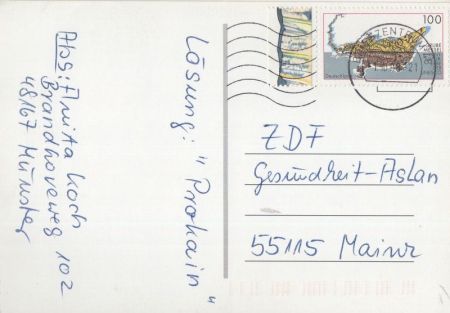 Abs: Anita Koch
Brandhoveweg 102
48167 Münster
Lösung: "Prokain"
100
Deutschland
ZDF
Gesundheit-Aslan
55115 Mainz